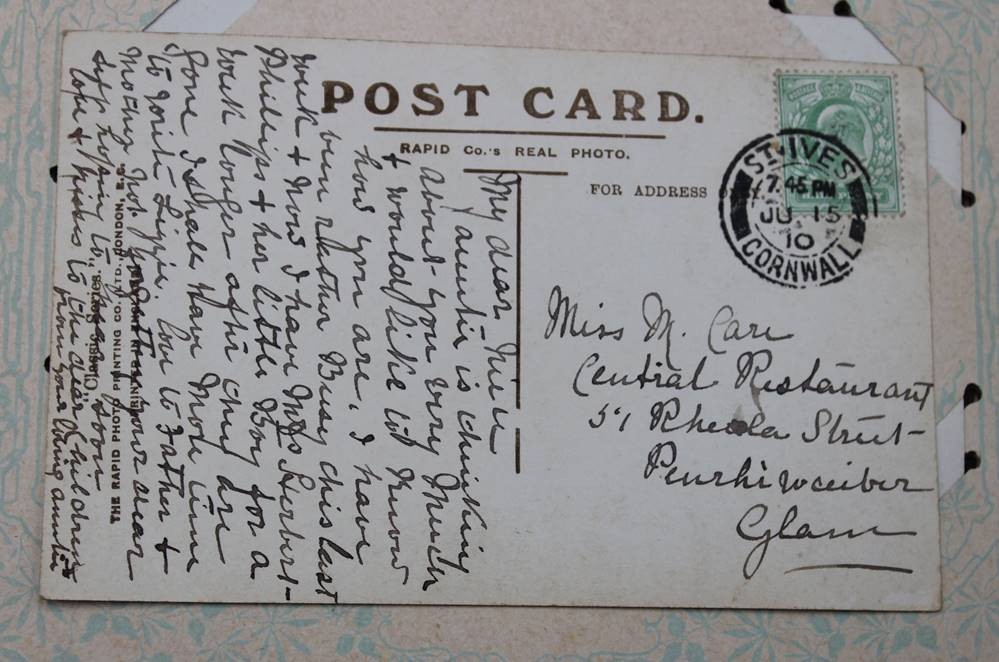 POST CARD.
RAPID Co.'s REAL PHOTO.
FOR ADDRESS
ST. IVES
7.45 PM
JU 15
10
CORNWALL
Miss M. Care
Central Restaurant
51 Rheola Street
Penrhiwceiber
Glam
My dear Niece
auntie is thinking
about you very much
& would like to know
how you are. I have
been rather Busy this last
week & Now I have Mrs Herbert
Phillips & her little Boy for a
week longer after they are
gone I shall have More time
to write Lizzie. love to Father &
Mother Not your dear
self hoping to hear soon
love & Kisses to the dear Children
from your loving auntie
THE RAPID PHOTO PRINTING CO., LTD., LONDON, E.C.